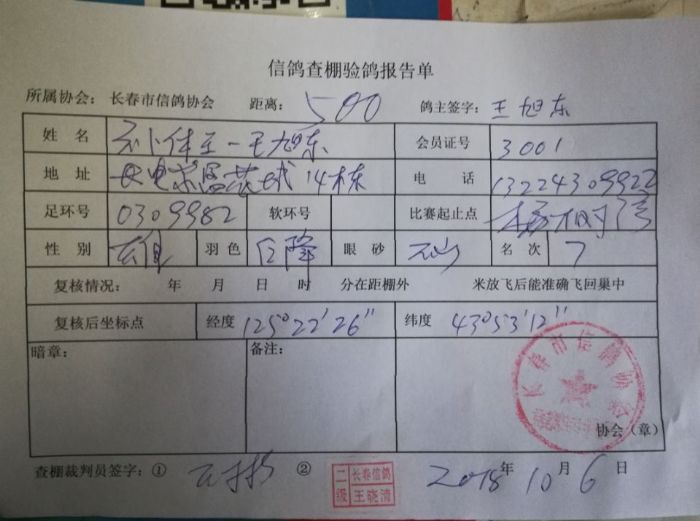 信鸽查棚验鸽报告单
所属协会： 长春市信鸽协会 距离： 500 鸽主签字： 王旭东
姓 名 王旭东 会员证号 3001
地 址 14栋 电 话 13224309922
足环号 0309982 软环号 比赛起止点
性 别 羽色 眼 砂 名 次 7
复核情况： 年 月 日 时 分在距棚外 米放飞后能准确飞回巢中
复核后坐标点 经度 125°22'26" 纬度 43°53'12"
暗章： 备注：
长春市信鸽协会
协会（章）
查棚裁判员签字：① ② 二级 长春信鸽 王晓清 2018年 10月 6日